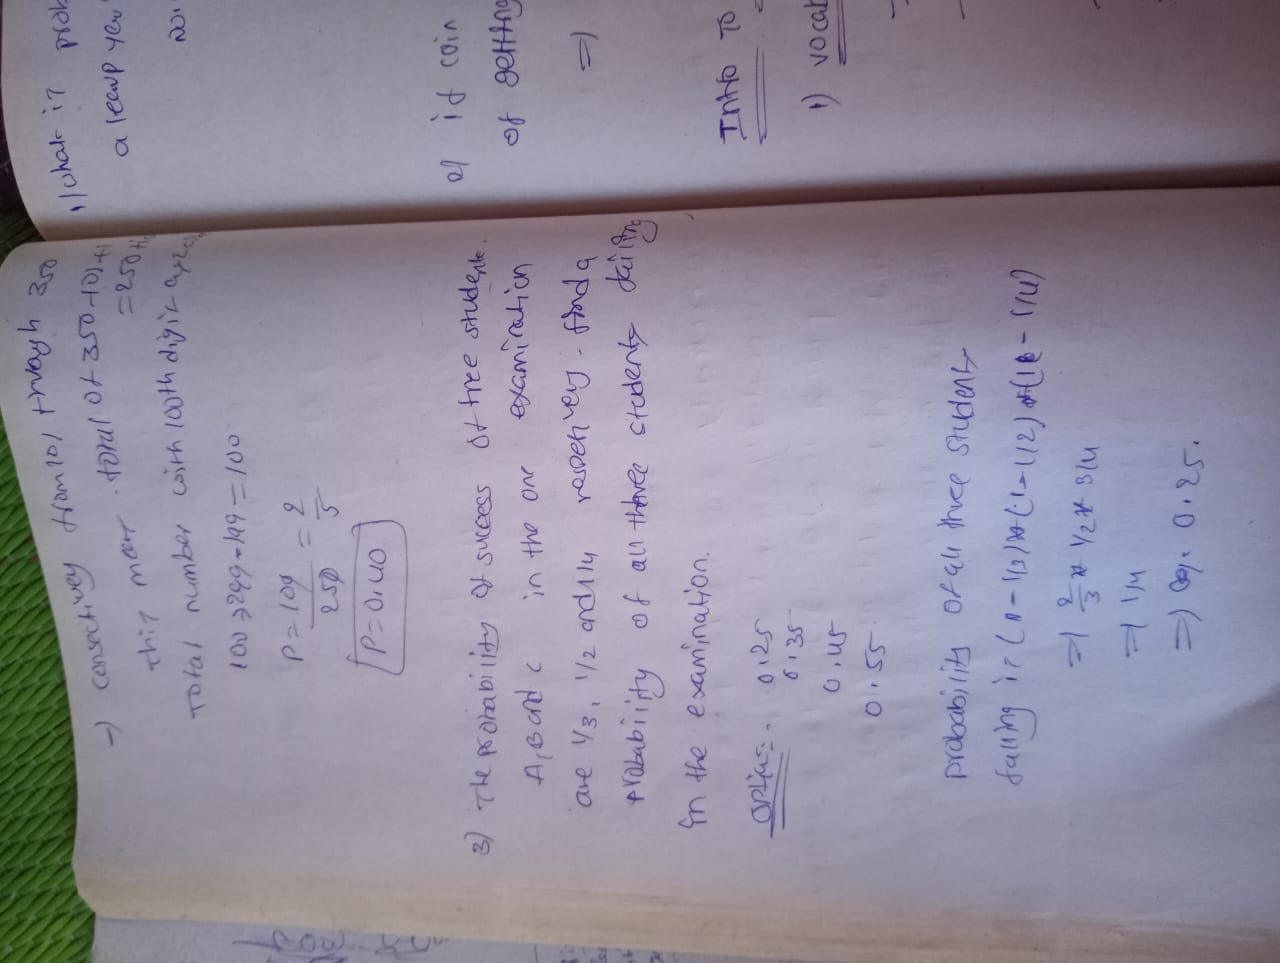 =) consectivey from 101 through 350
this mear. total of 350-101+1
=250
Total number with 100th digit
100 → 299-199=100
P = 100/250 = 2/5
P=0.40
3) The probability of success of tree students.
A, B and C in the one examination
are 1/3, 1/2 and 1/4 respectivey. find a
probability of all three students failing
in the examination.
0.25
0.35
0.45
0.55
probability of all three students
falling is (1-1/3) * (1-1/2) * (1-1/4)
=) 2/3 * 1/2 * 3/4
=) 1/4
=) 0.25.
1) What is prob
a leap year
2) if coin
of getting
=)
Intro To
1) vocab